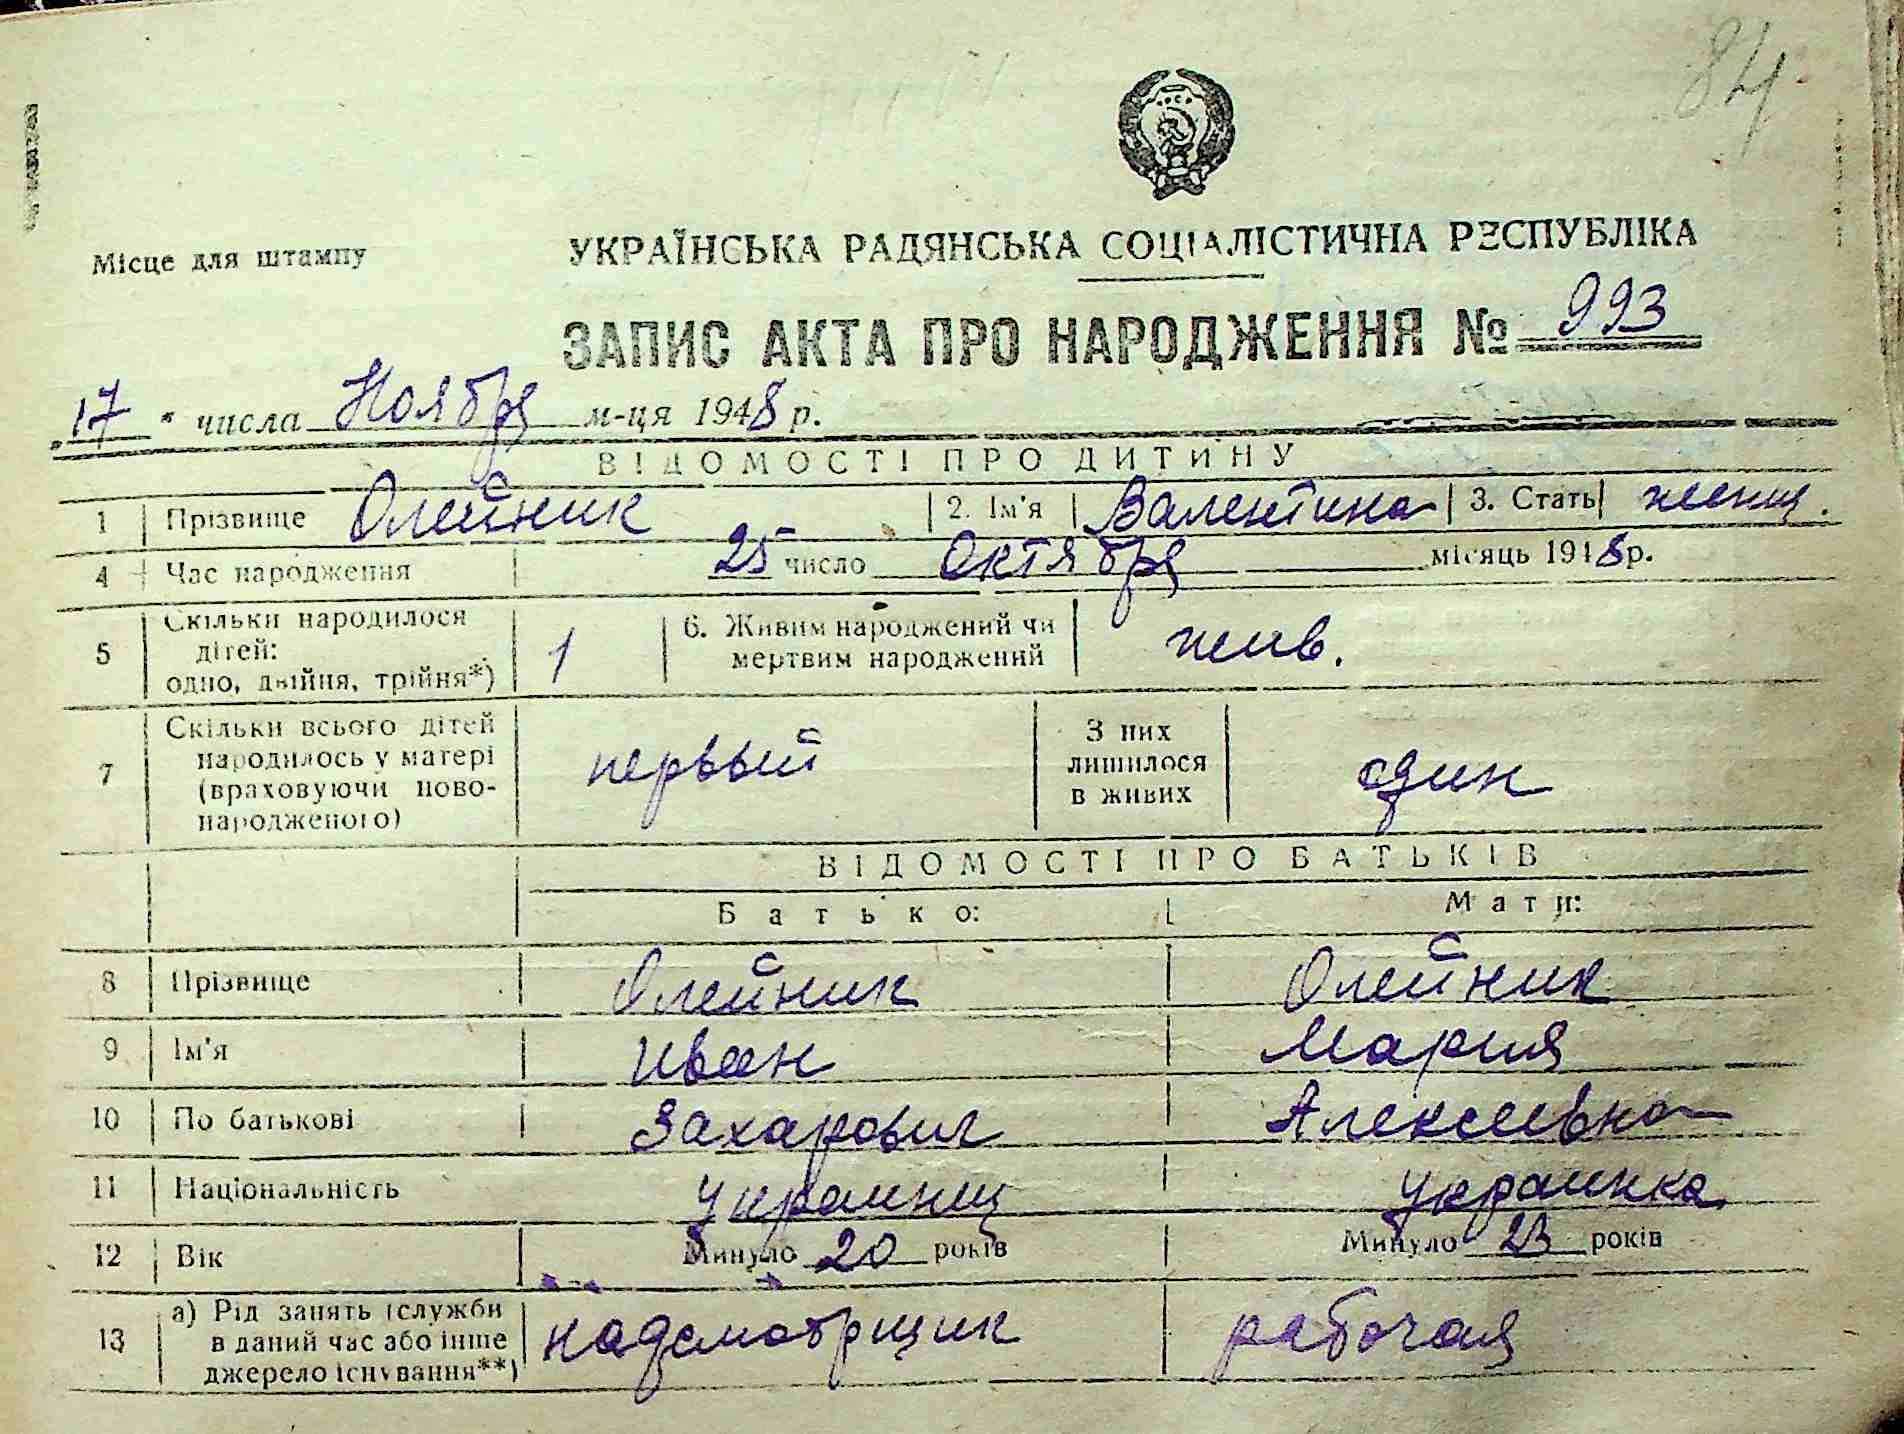 84
Місце для штампу
УКРАЇНСЬКА РАДЯНСЬКА СОЦІАЛІСТИЧНА РЕСПУБЛІКА
ЗАПИС АКТА ПРО НАРОДЖЕННЯ № 993
„17 " числа Ноября м-ця 1948 р.
ВІДОМОСТІ ПРО ДИТИНУ
1 Прізвище Олейник 2. Ім'я Валентина 3. Стать женщ.
4 Час народження 25 число Октября місяць 1948 р.
5 Скільки народилося дітей: одно, двійня, трійня*) 1 6. Живим народжений чи мертвим народжений жив.
7 Скільки всього дітей народилось у матері (враховуючи ново-народженого) первый З них лишилося в живих один
ВІДОМОСТІ ПРО БАТЬКІВ
Батько: Мати:
8 Прізвище Олейник Олейник
9 Ім'я Иван Мария
10 По батькові Захарович Алексеевна
11 Національність украинец украинка
12 Вік Минуло 20 років Минуло 23 років
13 а) Рід занять (служби в даний час або інше джерело існування**) надсмотрщик рабочая